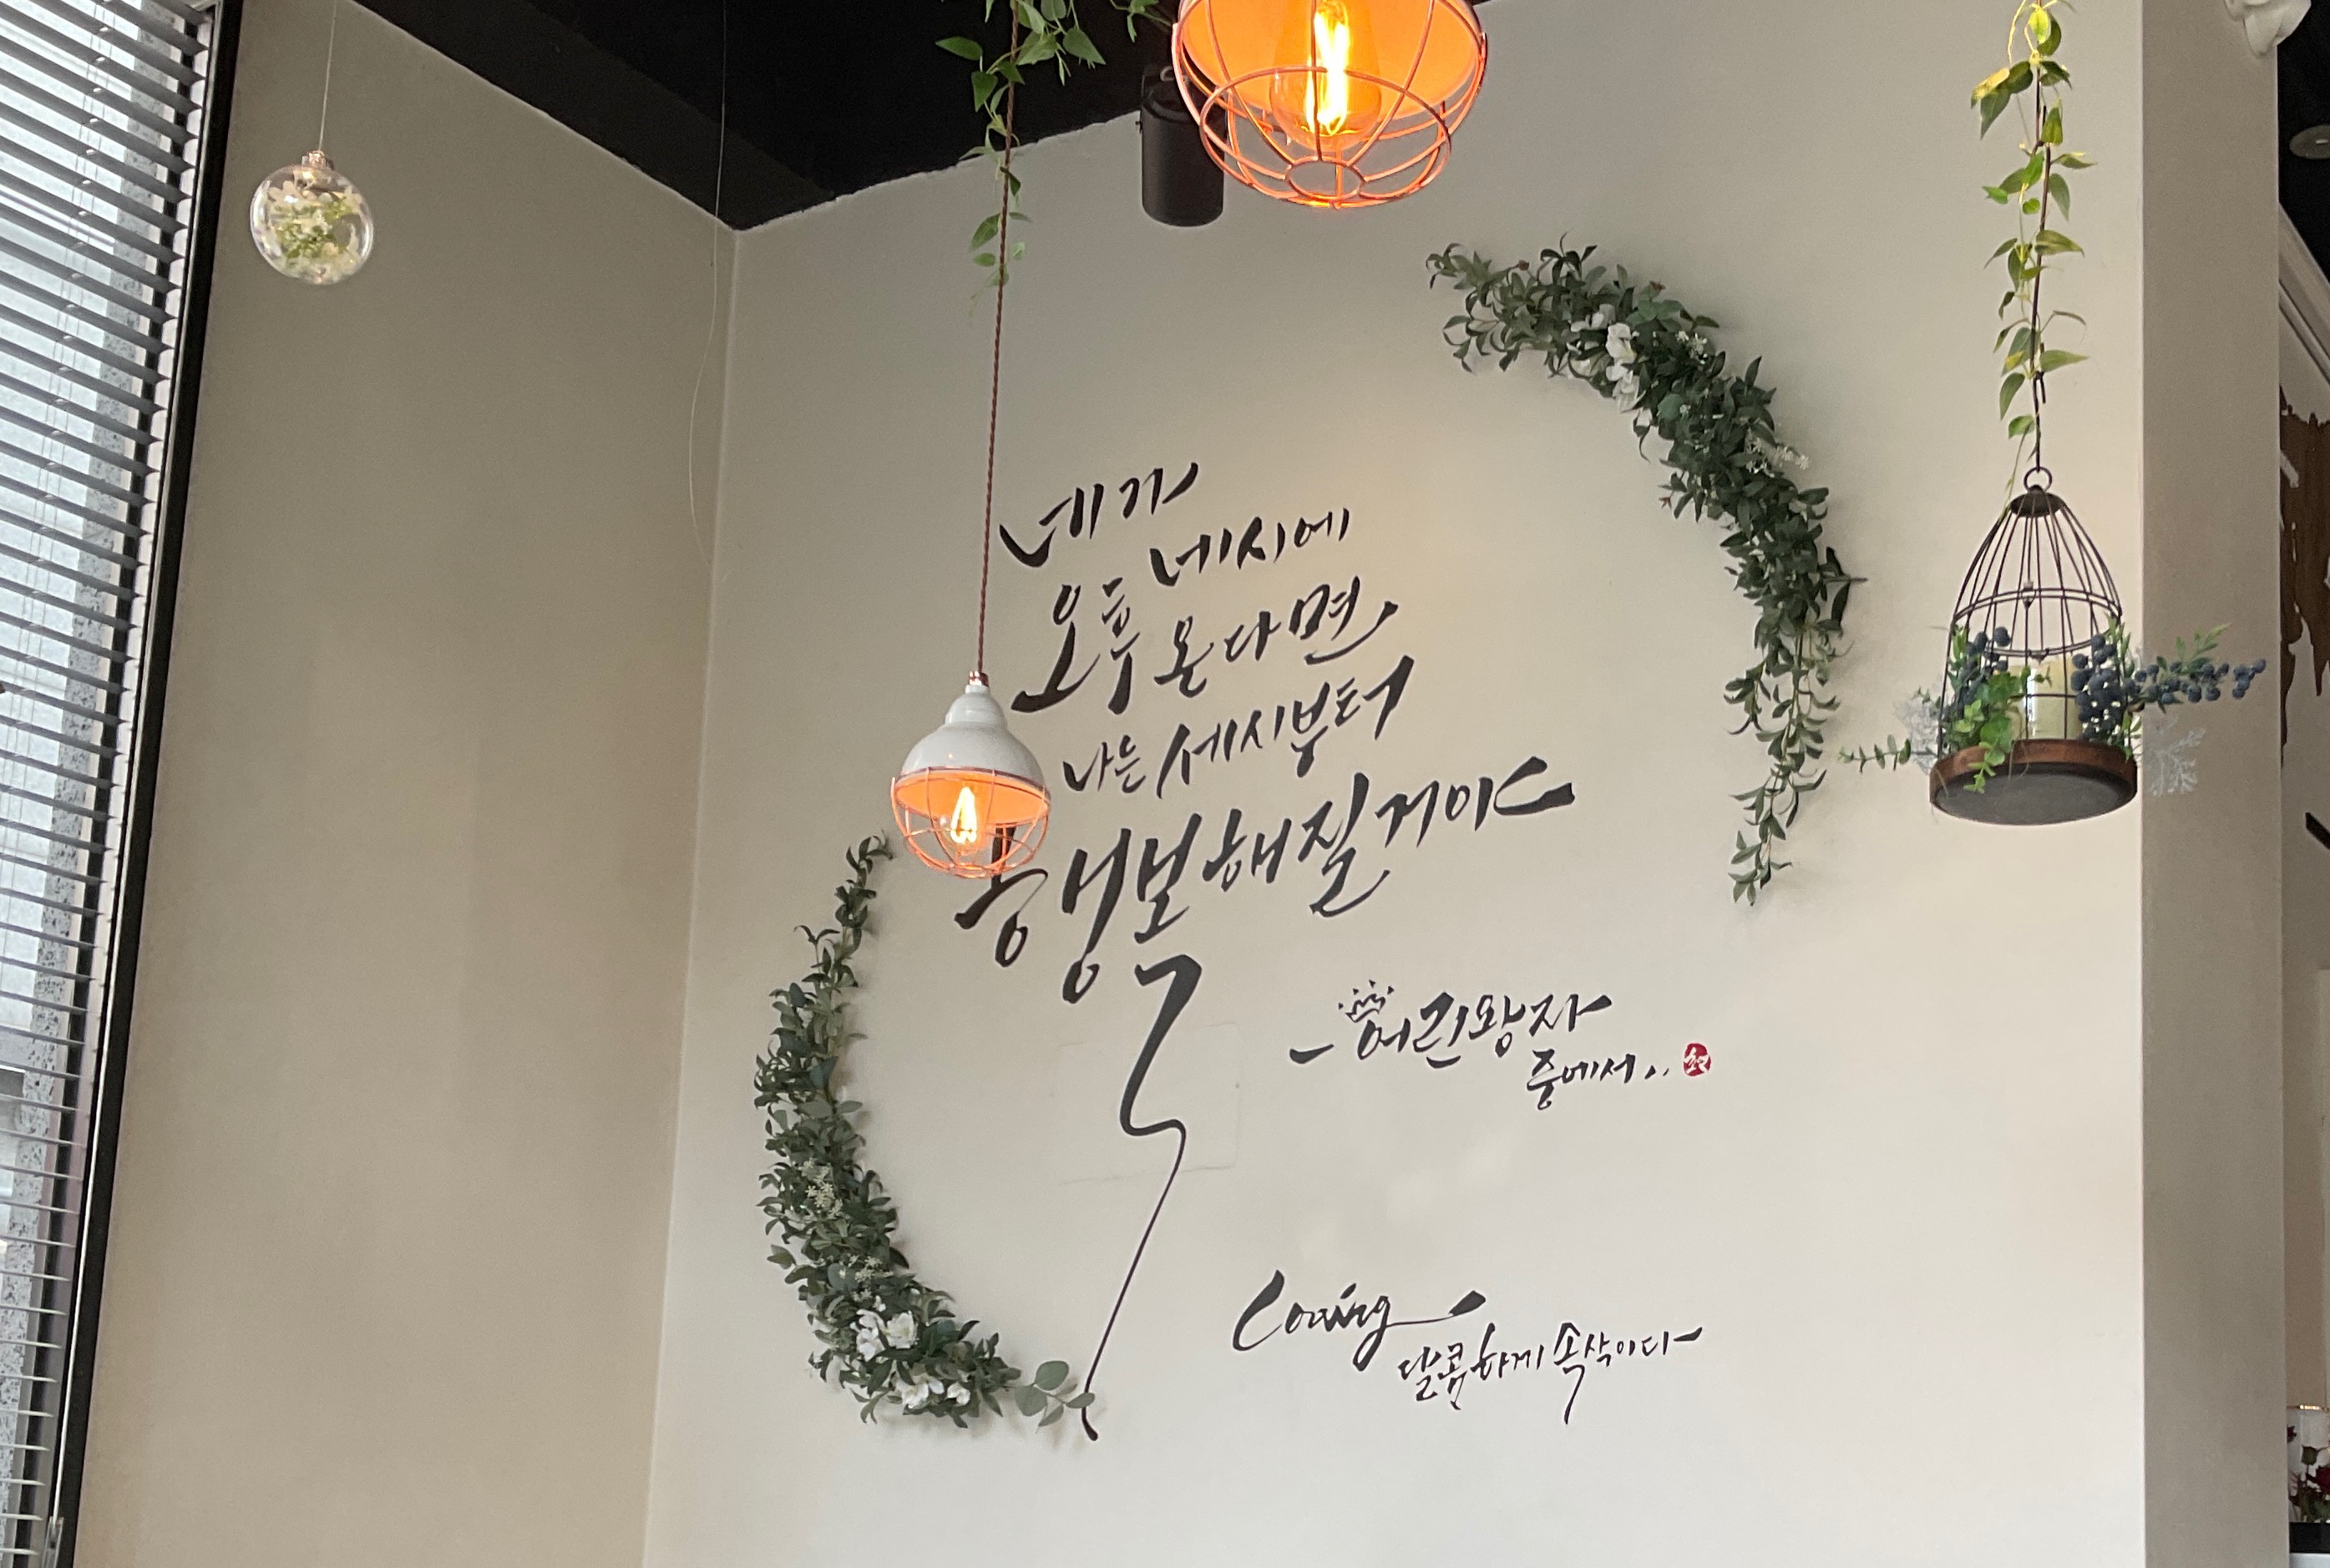 네가
오후 네시에
온다면
나는 세시부터
행복해질거야
- 어린왕자
중에서..
Loving
달콤하게 속삭이다